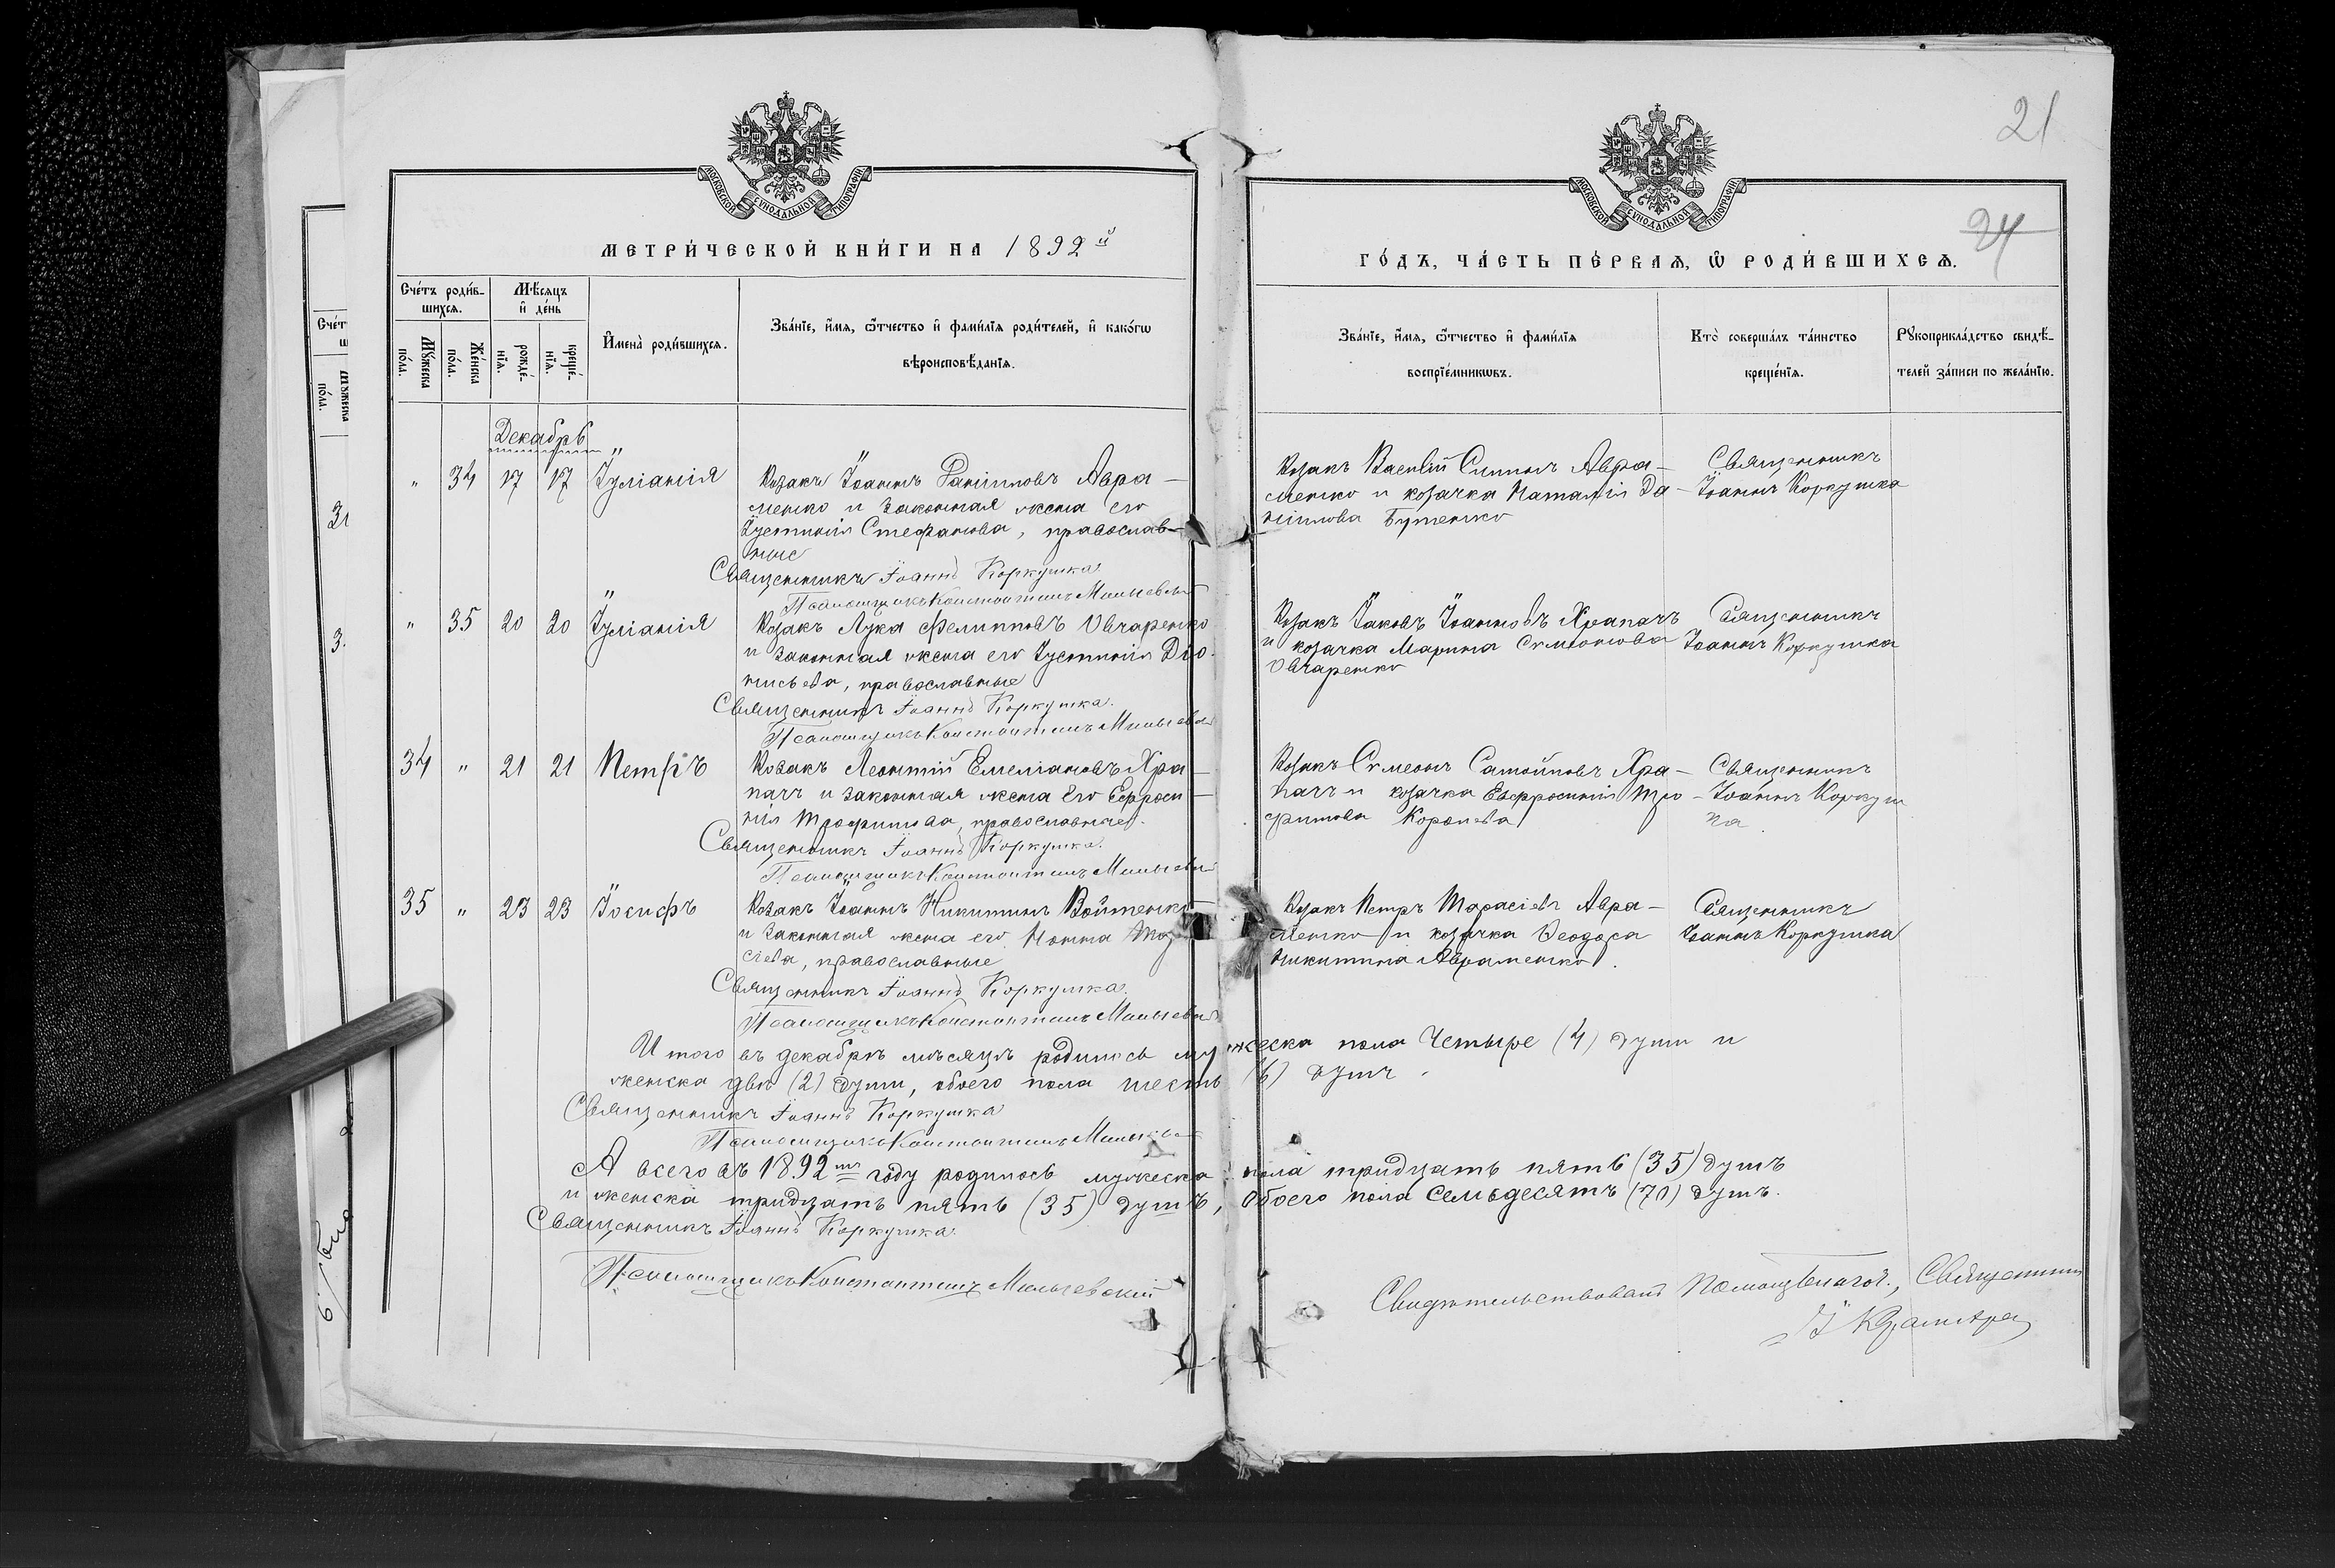 21
24
МОСКОВСКОЙ СѴНОДАЛЬНОЙ ТИПОГРАФІИ.
МЕТРИ́ЧЕСКОЙ КНИ́ГИ НА 1892й
МОСКОВСКОЙ СѴНОДАЛЬНОЙ ТИПОГРАФІИ.
ГО́ДЪ, ЧА́СТЬ ПЕ́РВАѦ, Ѡ҆ РОДИ́ВШИХСѦ.
Сче́тъ роди́в-
шихсѧ.
Мꙋ́жеска
по́ла.
Же́нска
по́ла.
Мѣ́сѧцъ
и҆ де́нь
рожде́-
нїѧ.
креще́-
нїѧ.
И҆мена̀ роди́вшихсѧ.
Зва́нїе, и҆́мѧ, ѻ҆́тчество и҆ фами́лїѧ роди́телей, и҆ како́гѡ
вѣроисповѣ́данїѧ.
Зва́нїе, и҆́мѧ, ѻ҆́тчество и҆ фами́лїѧ
воспрїе́мникѡвъ.
Кто̀ соверша́лъ та́инство
креще́нїѧ.
Рꙋкоприкла́дство свидѣ́-
телей за́писи по жела́нїю.
Декабрь
" 34 17 17 Іуліанія
Козакъ Іоаннъ Даніиловъ Авра-
менко и законная жена его
Іустинія Стефанова, православ-
ные
Священникъ Іоаннъ Коркушка
Псаломщикъ Константинъ
Козакъ Василій Авра-
менко и козачка Наталія Да-
ніилова Бутенко
Священникъ
Іоаннъ Коркушка
" 35 20 20 Іуліанія
Козакъ Лука Филипповъ Овчаренко
и законная жена его Іустинія Діо-
нисьева, православные
Священникъ Іоаннъ Коркушка.
Псаломщикъ Константинъ
Козакъ Іаковъ Іоанновъ Храпачъ
и козачка Марина Симеонова
Овчаренко
Священникъ
Іоаннъ Коркушка
34 " 21 21 Петръ
Козакъ Леонтій Емеліановъ Хра-
пачъ и законная жена его Ефроси-
нія Трофимова, православные.
Священникъ Іоаннъ Коркушка.
Псаломщикъ Константинъ
Козакъ Симеонъ Самойловъ Хра-
пачъ и козачка Евфросинія Тро-
фимова
Священникъ
Іоаннъ Коркуш
ка
35 " 23 23 Іосифъ
Козакъ Іоаннъ Никитинъ Войтенко
и законная жена его Нонна
сіева, православные
Священникъ Іоаннъ Коркушка.
Псаломщикъ Константинъ
Козакъ Петръ Тарасіевъ Авра-
менко и козачка Ѳеодора
Никитина Авраменко.
Священникъ
Іоаннъ Коркушка
Итого въ декабрѣ мѣсяцѣ родилось мужеска пола четыре (4) души и
женска двѣ (2) души, обоего пола шесть (6) душъ.
Священникъ Іоаннъ Коркушка
Псаломщикъ Константинъ
А всего въ 1892мъ году родилось мужеска пола тридцать пять (35) душъ
и женска тридцать пять (35) душъ, обоего пола семьдесятъ (70) душъ.
Священникъ Іоаннъ Коркушка.
Псаломщикъ Константинъ
Свидѣтельствовалъ Помощ. Благоч., Священник